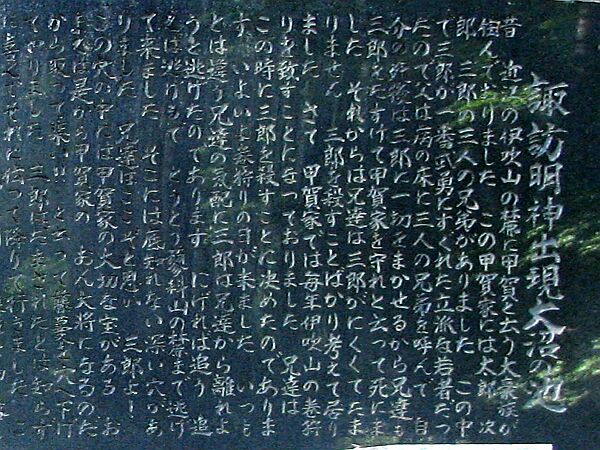 諏訪明神出現大沼の池
昔 近江の伊吹山の麓に甲賀と云う大豪族が
住んでおりました この甲賀家には太郎 次
郎 三郎の三人の兄弟がありました この中
で三郎が一番武勇にすぐれた立派な若者だつ
たので父は病の床に三人の兄弟を呼んで 自
分の死後は三郎に一切をまかせるから兄達も
三郎をたすけて甲賀家を守れと云って死にま
した それからは兄達は三郎がにくくてたま
りません 三郎を殺すことばかり考えて居り
ました さて 甲賀家では毎年伊吹山の巻狩
りを致すことになっておりました 兄達は
この時に三郎を殺すことに決めたのでありま
す いよいよ巻狩りの日が来ました いつも
とは違う兄達の気配に三郎は兄達から離れよ
うと逃げたのであります にげれば追う 追
えば逃げもて とうとう蓼科山の麓まで逃げ
て来ました そこには底知れない深い穴があ
りました 兄達はここぞと思い 三郎よ!
この穴の中には甲賀家の大切な宝がある お
まえは是から甲賀家の あん大将になるのだ
から取って来い!! と云って藤蔓を穴へ下げ
てやりました 三郎はだまされたとは知らず